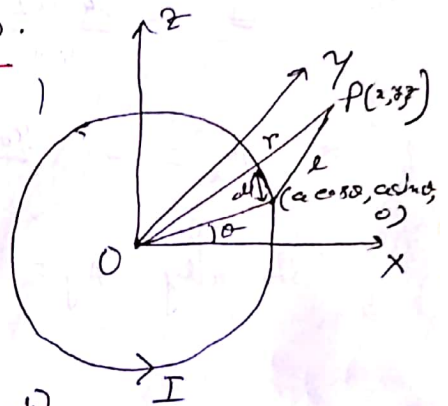 Z
)
Y
P(x,y,z)
r
dl
l
(a cosθ, a sinθ,
0)
θ
O
X
I